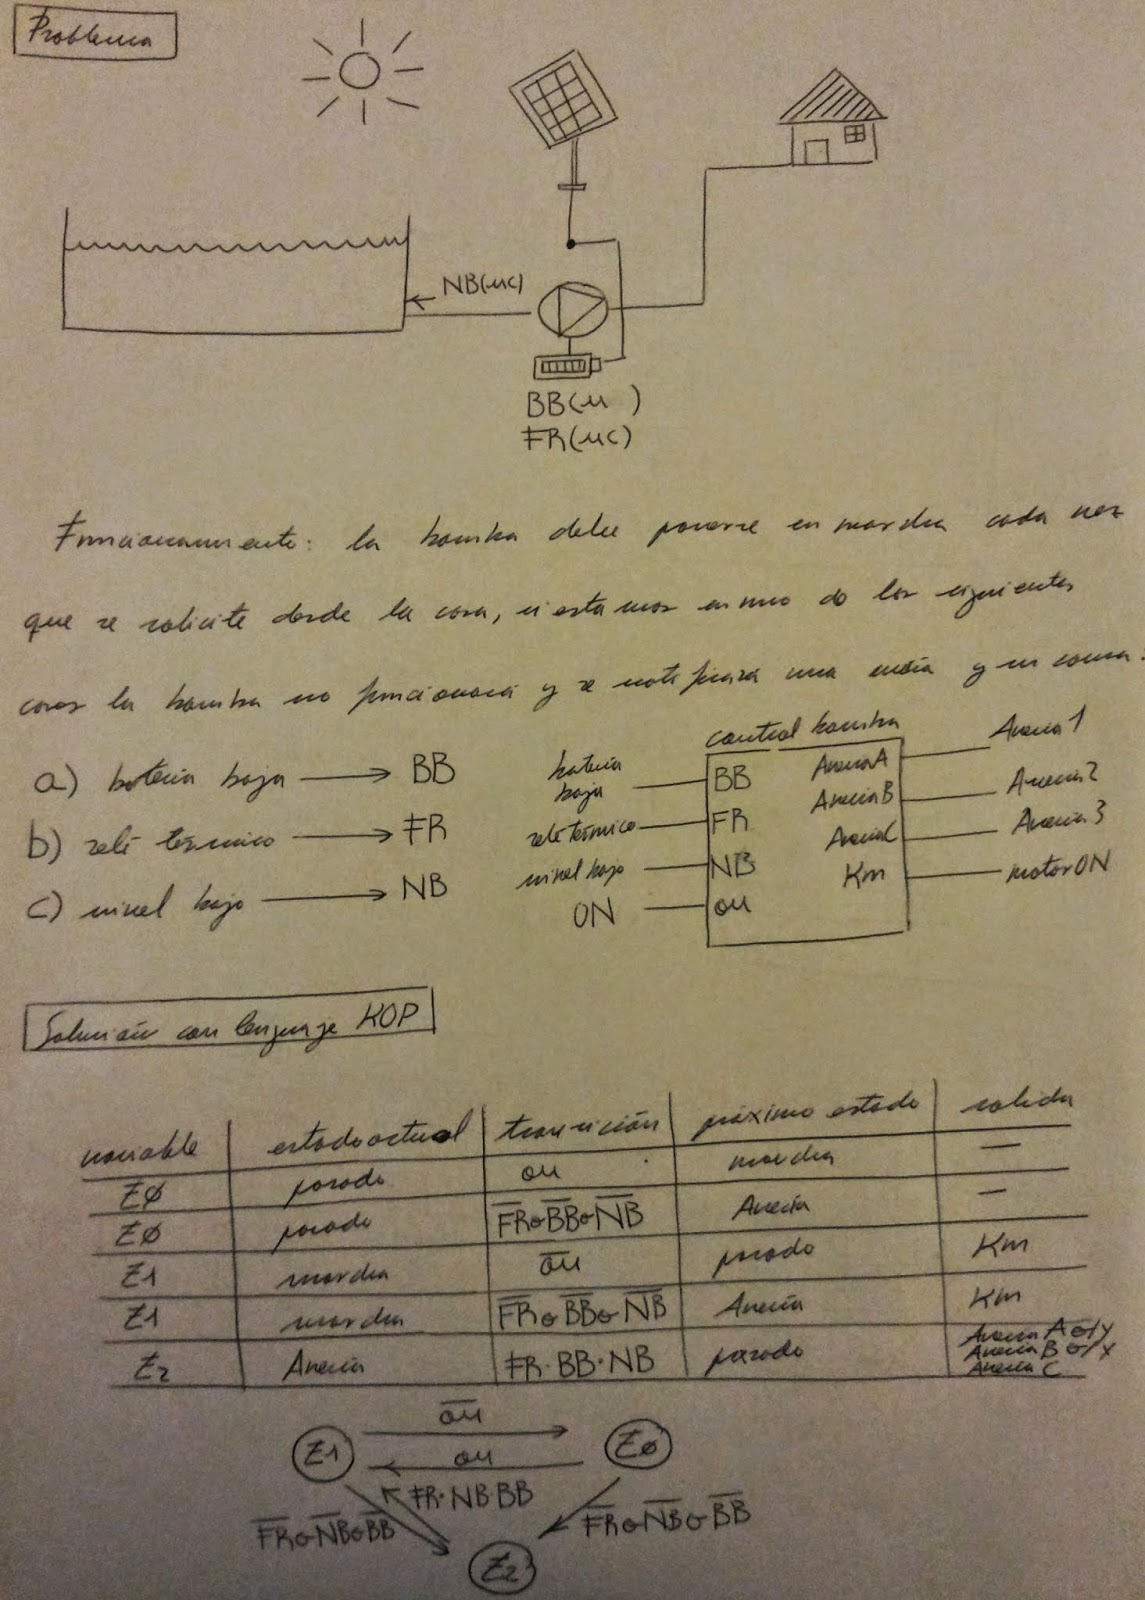 Problema
NB(nc)
BB(n )
FR(nc)
Funcionamiento: la bomba debe ponerse en marcha cada vez
que se solicite desde la casa, si estamos en uno de los siguientes
casos la bomba no funcionará y se notificará una avería y su causa.
a) batería baja → BB
b) relé térmico → FR
c) nivel bajo → NB
control bomba
batería baja BB AveríaA Avería1
relé térmico FR AveríaB Avería2
nivel bajo NB AveríaC Avería3
ON on Km motorON
Solución con lenguaje KOP
variable estado actual transición próximo estado salida
EØ parado on marcha —
EØ parado F̅R̅ o B̅B̅ o N̅B̅ Avería —
E1 marcha o̅n̅ parado Km
E1 marcha F̅R̅ o B̅B̅ o N̅B̅ Avería Km
E2 Avería FR·BB·NB parado Avería A o/y
Avería B o/y
Avería C
o̅n̅
E1 EØ
on
FR·NB·BB
F̅R̅ o N̅B̅ o B̅B̅ F̅R̅ o N̅B̅ o B̅B̅
E2